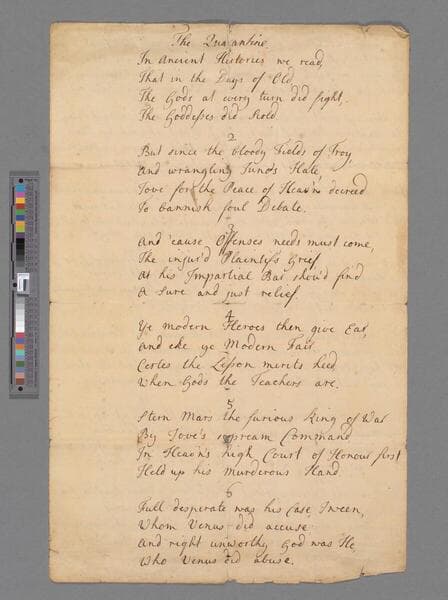 The Quarantine.
In Ancient Histories we read,
That in the Days of Old,
The Gods at every turn did fight,
The Goddesses did Scold.
2
But since the bloody Fields of Troy,
And wrangling Juno's Hate,
Jove for the Peace of Heav'n decreed
To bannish foul Debate.
3
And 'cause Offenses needs must come,
The injur'd Plaintiff's Grief
At his Impartial Bar shou'd find
A Sure and just relief.
4
Ye modern Heroes then give Ear,
And eke ye Modern Fair
Certes the Lesson merits heed
When Gods the Teachers are.
5
Stern Mars the furious King of War
By Jove's supream Command
In Heav'n's high Court of Honour first
Held up his murderous Hand.
6
Full desperate was his Case, I ween,
Whom Venus did accuse
And right unworthy God was He,
Who Venus did abuse.